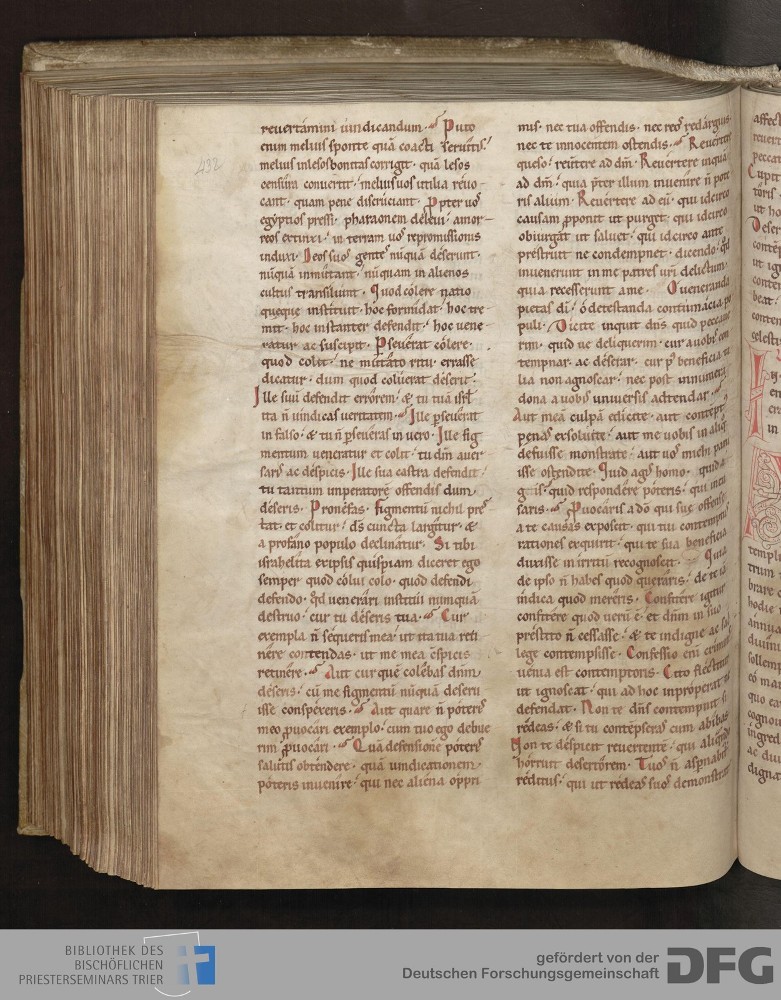 432
reuertamini uindicandum. Puto
enim melius sponte quā coacti seruitis.
melius inlesos bonitas corrigit. quā lesos
censura conuertit. melius uos utilia reuo-
cant. quam pene discruciant. Ppter uos
egyptios pressi. pharaonem deleui. amor-
reos extinxi. in terram uos repromissionis
induxi. Deos suos gentes nūquā deserunt.
nūquā inmutant. nūquam in alienos
cultus transiliunt. Quod colere natio
queque instituit. hoc formidat. hoc tre
mit. hoc instanter defendit. hoc uene-
ratur ac suscipit. Pseuerat colere.
quod colit. ne mutato ritu. errasse
dicatur. dum quod coluerat deserit.
Ille suū defendit errorem. & tu tuā isrl
ita ñ uindicas ueritatem. Ille pseuerat
in falso. & tu ñ pseueras in uero. Ille fig
mentum ueneratur et colit. tu dm̄ auer
saris ac despicis. Ille sua castra defendit.
tu tantum imperatorē offendis dum
deseris. Pronefas. figmentū nichil pres
tat. et colitur. ds cuncta largitur. &
a profano populo declinatur. Si tibi
israhelita eripsis quispiam diceret ego
semper quod colui colo. quod defendi
defendo. qd uenerari institui numquā
destruo. cur tu deseris tua. Cur
exempla ñ sequeris mea. ut ita tua reti
nere contendas. ut me mea cspicis
retinere. Aut cur quē colebas dnm̄
deseris. cū me figmentū nūquā deseru
isse conspexeris. Aut quare ñ poteris
meo puocari exemplo. cum tuo ego debue
rim puocari. Quā defensionē poteris
salutis obtendere. quā uindicationem
poteris inuenire. qui nec aliena oppri
mis. nec tua offendis. nec reos redarguis.
nec te innocentem ostendis. Reuertere
queso. reūtere ad dm̄. Reuertere inquā
ad dm̄. quia pter illum inuenire ñ pote
ris alium. Reuertere ad eū. qui idcirco
causam pponit ut purget. qui idcirco
obiurgat ut saluet. qui idcirco ante
prestruit ne condempnet. dicendo. qd
inuenerunt in me patres uri delictum.
quia recesserunt a me. O ueneranda
pietas di. o detestanda contumacia po
puli. Dicite inquit dns quid peccaue
rim. quid ue deliquerim. cur a uobis con
tempnar. ac deserar. cur p beneficia ta
lia non agnoscar. nec post innumera
dona a uobis uniuersis adtendar.
Aut meā culpā edicite. aut contemptꝰ
penas exsoluite. aut me uobis in aliq
defuisse monstrate. aut uos michi parui
isse ostendite. Quid agis homo. quid a
gis. quid respondere poteris. qui incu
saris. Puocaris a do qui suę offense
a te causas exposcit. qui tui contemptus
rationes exquirit. qui te sua beneficia
duxisse in irritū recognoscit. Quia
de ipso ñ habes quod queraris. de te iā
indica quod mereris. Confitere igitur
confitere quod uerū ē. et dnm̄ in suo
prestito ñ cessasse. & te indigne ac sac
lege contempsisse. Confessio eni criminis
uenia est contemptoris. Cito flectitur
ut ignoscat. qui ad hoc inproperat ut
defendat. Non te dns contempnit si
redeas. & si tu contēpseras cum abibas.
Non te despicit reuertentē. qui aliquando
horruit desertorem. Tuos ñ aspnabit
reditus. qui ut redeas suos demonstrat
BIBLIOTHEK DES
BISCHÖFLICHEN
PRIESTERSEMINARS TRIER
gefördert von der
Deutschen Forschungsgemeinschaft
DFG